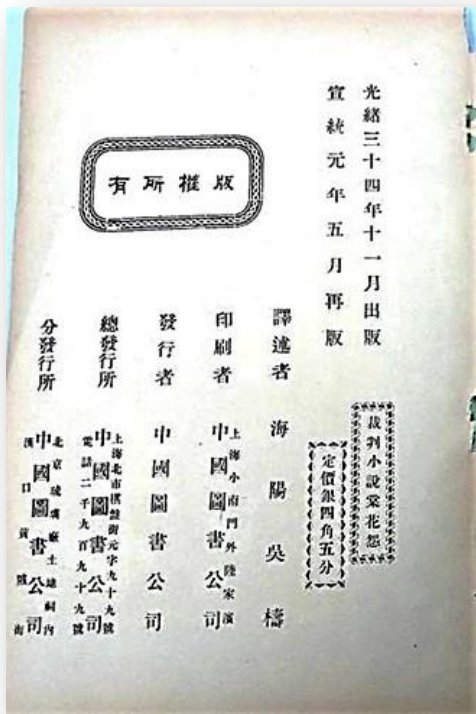 光緒三十四年十一月出版
宣統元年五月再版
版權所有
裁判小說棠花怨
定價銀四角五分
譯述者 海陽吳檮
印刷者 上海小南門外陸家濱 中國圖書公司
發行者 中國圖書公司
總發行所 上海北市棋盤街元字九十九號 中國圖書公司 電話二千九百九十九號
分發行所 北京琉璃廠土地祠內 中國圖書公司 漢口黃陂街